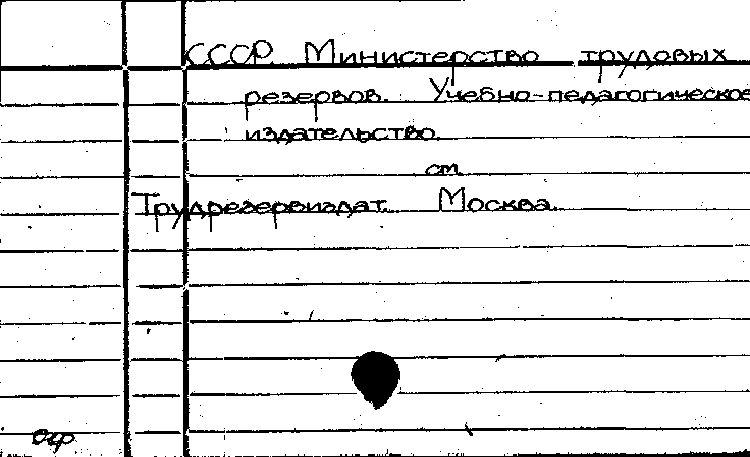 СССР Министерство трудовых
резервов. Учебно-педагогическое
издательство.
см.
Трудрезервиздат. Москва.